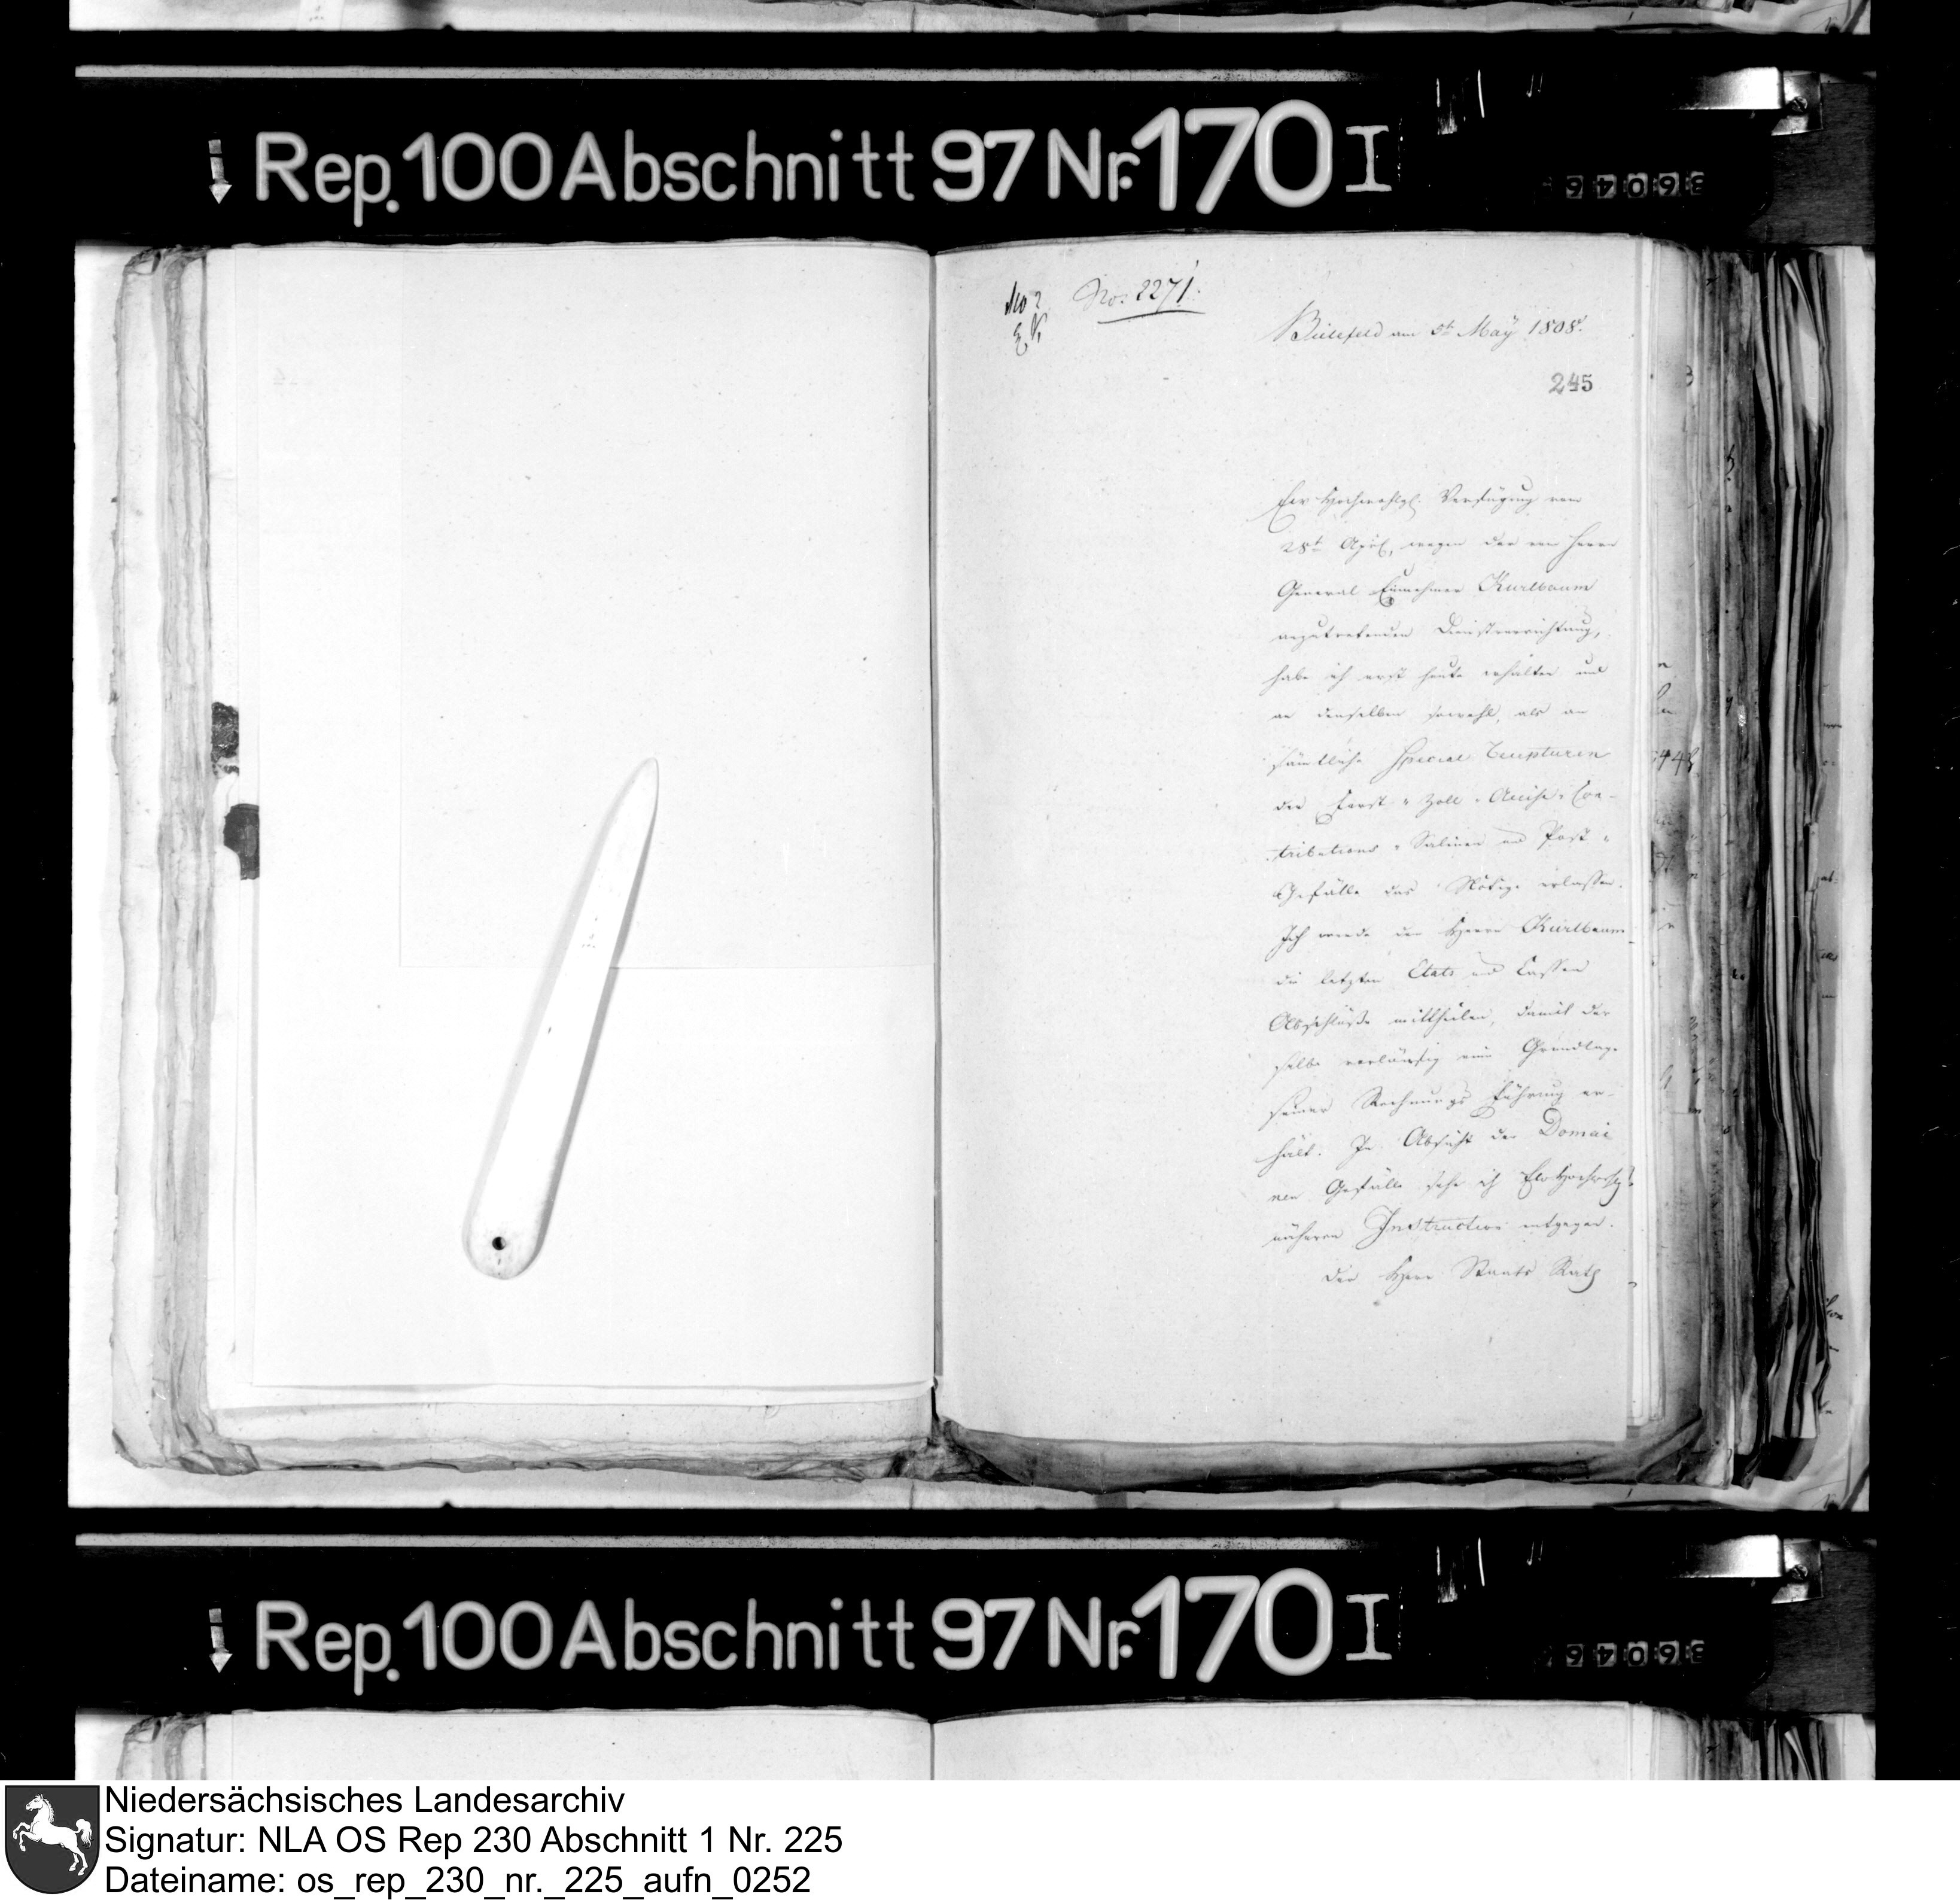 Rep. 100 Abschnitt 97 Nr. 170 I
No. 2271.
Bielefeld am 5t May 1808.
245
Ew Hochwohlgl. Verfügung vom
28t April, wegen der vom Herrn
General Einnehmer Kurlbaum
anzutretenden Dienstverrichtung,
habe ich erst heute erhalten und
an denselben sowohl, als an
sämtliche Special Recepturen
der Forst- Zoll- Accise- Con-
tributions- Salinen und Post-
Gefälle das Nötige erlassen.
Ich werde den Herrn Kurlbaum
die letzten Etats und Cassen
Abschlüße mittheilen, damit der
selbe vorläufig eine Grundlage
seiner Rechnungs Führung er-
hält. In Absicht der Domai
nen Gefälle sehe ich Ew Hochwohlgl.
näheren Instruction entgegen.
Der Herr Staats Rath
Rep. 100 Abschnitt 97 Nr. 170 I
Niedersächsisches Landesarchiv
Signatur: NLA OS Rep 230 Abschnitt 1 Nr. 225
Dateiname: os_rep_230_nr._225_aufn_0252